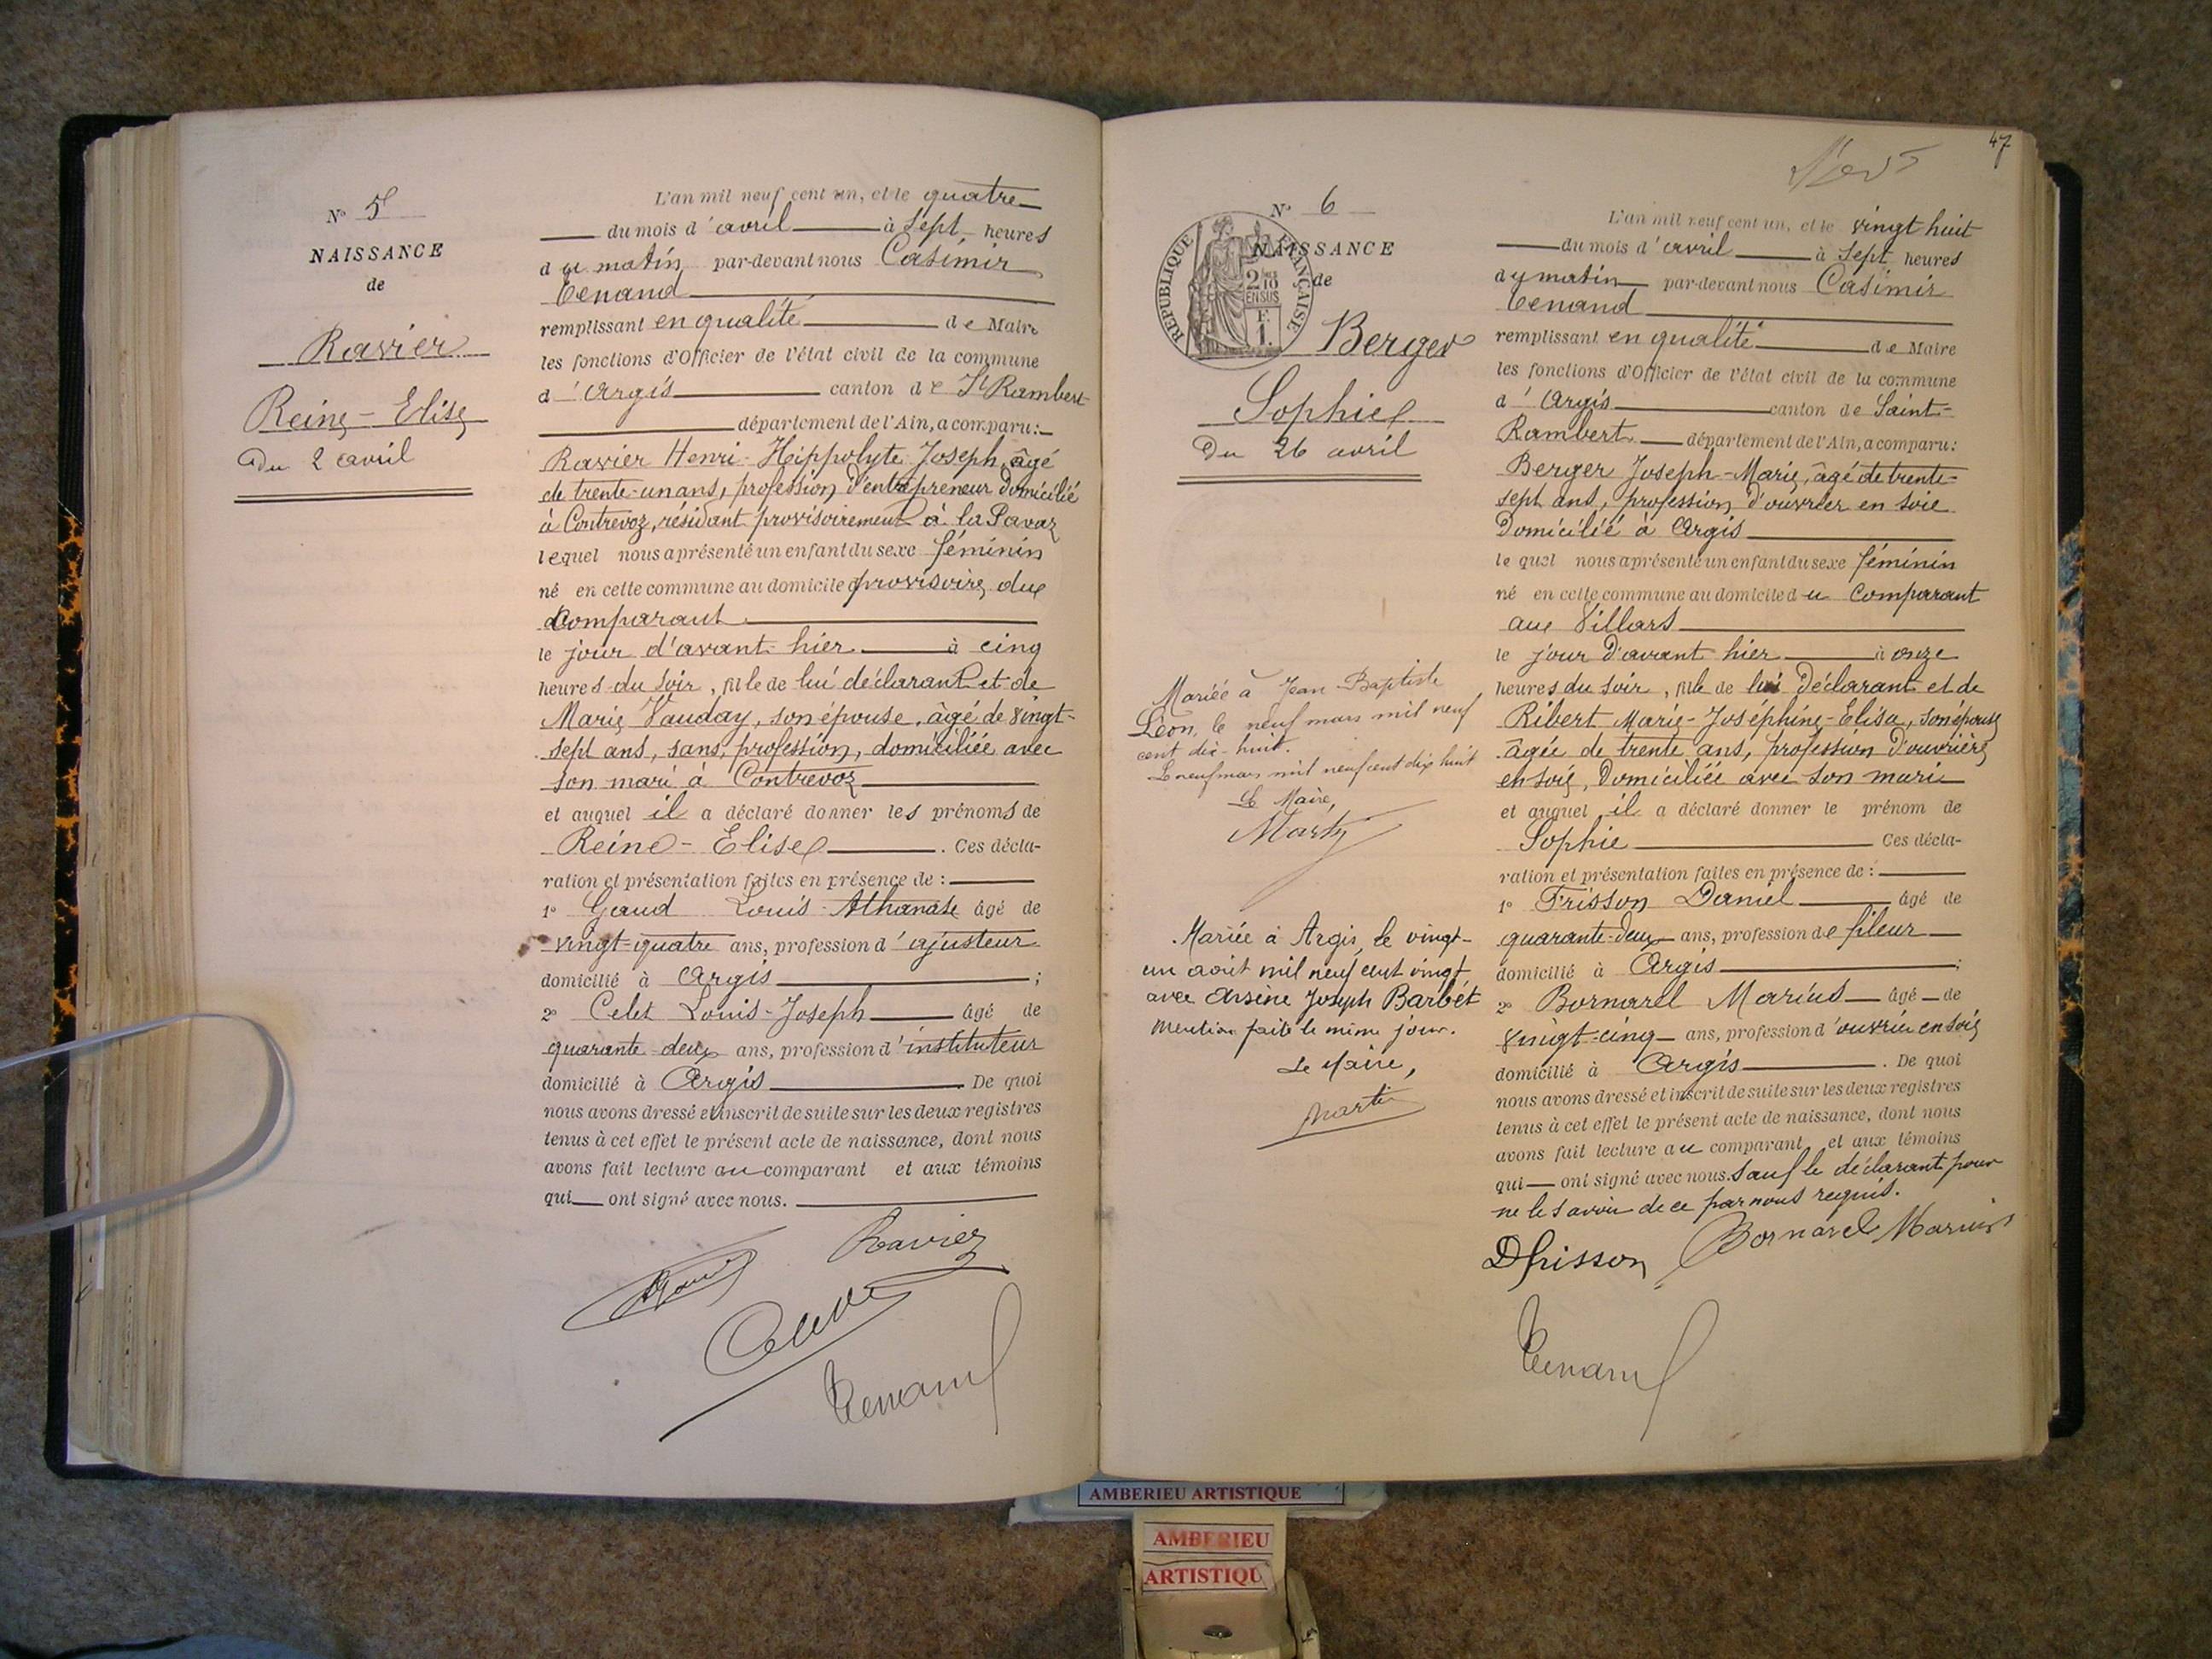 N° 5
NAISSANCE
de
Ravier
Reine-Elise
Du 2 avril
L'an mil neuf cent un, et le quatre
du mois d'avril à sept heures
du matin par-devant nous Casimir
Tenand
remplissant en qualité de Maire
les fonctions d'Officier de l'état civil de la commune
d'Argis canton de St Rambert
département de l'Ain, a comparu:
Ravier Henri-Hippolyte Joseph, âgé
de trente-un ans, profession d'entrepreneur domicilié
à Contrevoz, résidant provisoirement à la
lequel nous a présenté un enfant du sexe féminin
né en cette commune au domicile provisoire du
comparant
le jour d'avant-hier à cinq
heures du soir, fille de lui déclarant et de
Marie Vauday, son épouse, âgé de vingt-
sept ans, sans profession, domiciliée avec
son mari à Contrevoz
et auquel il a déclaré donner les prénoms de
Reine-Elise. Ces décla-
ration et présentation faites en présence de :
1° Gaud Louis-Athanase âgé de
vingt-quatre ans, profession d'ajusteur
domicilié à Argis ;
2° Celet Louis-Joseph âgé de
quarante-deux ans, profession d'instituteur
domicilié à Argis. De quoi
nous avons dressé et inscrit de suite sur les deux registres
tenus à cet effet le présent acte de naissance, dont nous
avons fait lecture au comparant et aux témoins
qui ont signé avec nous.
Ravier
Tenand
47
N° 6
NAISSANCE
de
REPUBLIQUE FRANÇAISE
2/10
EN SUS
F.
1.
Berger
Sophie
Du 26 avril
Mariée à Jean-Baptiste
Léon, le neuf mars mil neuf
cent dix-huit.
Le neuf mars mil neuf cent dix huit
Le Maire,
Marty
Mariée à Argis, le vingt-
un août mil neuf cent vingt
avec Arsène Joseph Barbet
Mention faite le même jour.
Le Maire,
L'an mil neuf cent un, et le vingt huit
du mois d'avril à sept heures
du matin par-devant nous Casimir
Tenand
remplissant en qualité de Maire
les fonctions d'Officier de l'état civil de la commune
d'Argis canton de Saint-
Rambert département de l'Ain, a comparu:
Berger Joseph-Marie, âgé de trente-
sept ans, profession d'ouvrier en soie
domicilié à Argis
lequel nous a présenté un enfant du sexe féminin
né en cette commune au domicile du comparant
aux Villars
le jour d'avant hier à onze
heures du soir, fille de lui déclarant et de
Ribert Marie-Joséphine-Elisa, son épouse
âgée de trente ans, profession d'ouvrière
en soie, domiciliée avec son mari
et auquel il a déclaré donner le prénom de
Sophie Ces décla-
ration et présentation faites en présence de :
1° Frisson Daniel âgé de
quarante-deux ans, profession de fileur
domicilié à Argis ;
2° Bornarel Marius âgé de
vingt-cinq ans, profession d'ouvrier en soie
domicilié à Argis. De quoi
nous avons dressé et inscrit de suite sur les deux registres
tenus à cet effet le présent acte de naissance, dont nous
avons fait lecture au comparant et aux témoins
qui ont signé avec nous sauf le déclarant pour
ne le savoir de ce par nous requis.
D frisson Bornarel Marius
Tenand
AMBERIEU ARTISTIQUE
AMBERIEU
ARTISTIQU